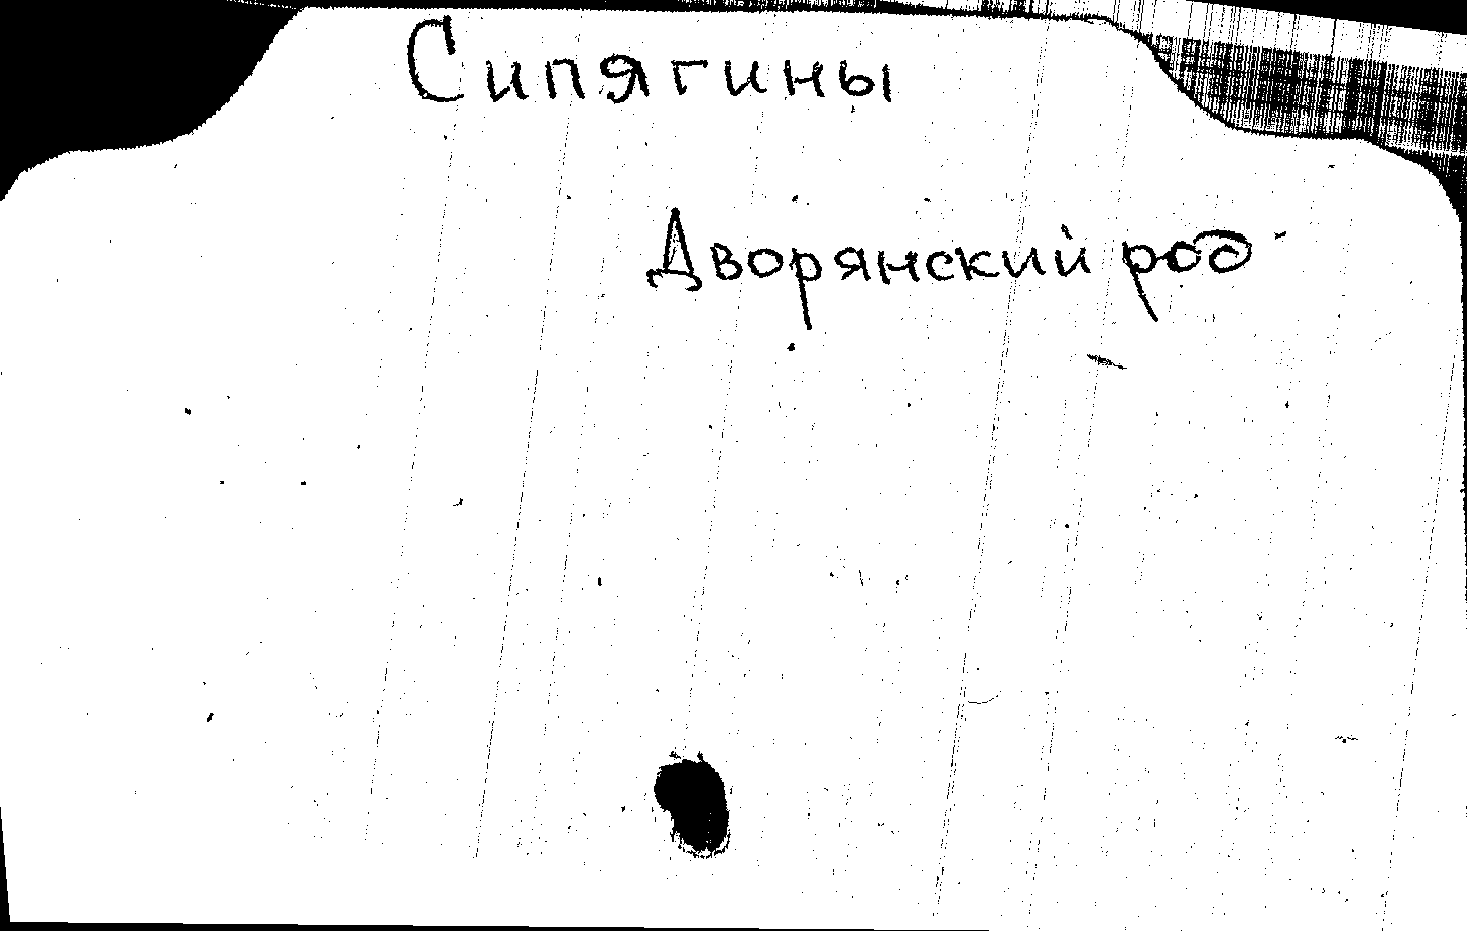 Сипягины
Дворянский род